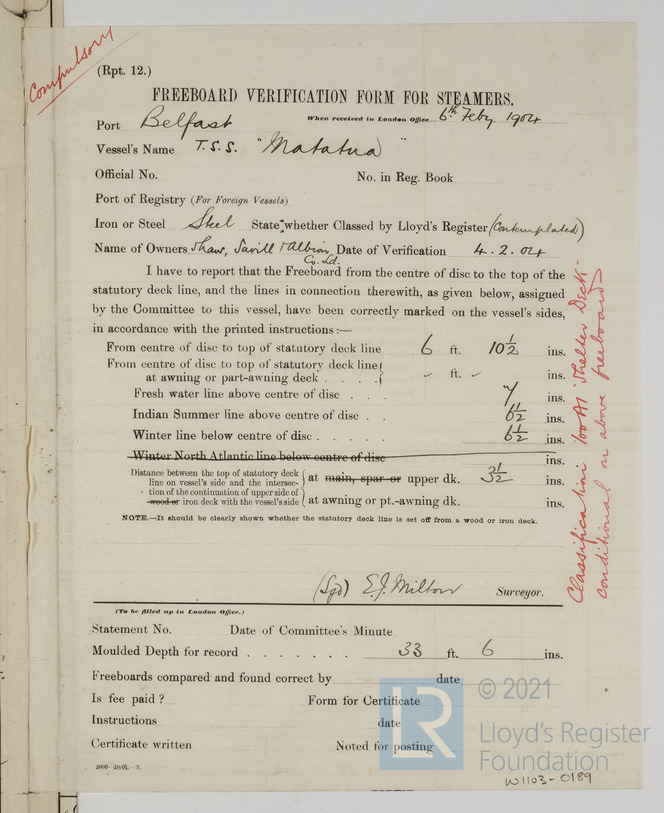 Compulsory
(Rpt. 12.)
FREEBOARD VERIFICATION FORM FOR STEAMERS.
When received in London Office 6th Feby. 1904
Port Belfast
Vessel's Name T.S.S. "Matatua"
Official No. No. in Reg. Book
Port of Registry (For Foreign Vessels)
Iron or Steel Steel State whether Classed by Lloyd's Register (Contemplated)
Name of Owners Shaw, Savill & Albion Co. Ld. Date of Verification 4.2.04
I have to report that the Freeboard from the centre of disc to the top of the
statutory deck line, and the lines in connection therewith, as given below, assigned
by the Committee to this vessel, have been correctly marked on the vessel's sides,
in accordance with the printed instructions :—
From centre of disc to top of statutory deck line 6 ft. 10½ ins.
From centre of disc to top of statutory deck line
at awning or part-awning deck . . . . ft. ins.
Fresh water line above centre of disc . . . 7 ins.
Indian Summer line above centre of disc . . 6½ ins.
Winter line below centre of disc . . . . . 6½ ins.
Winter North Atlantic line below centre of disc ins.
Distance between the top of statutory deck
line on vessel's side and the intersec-
tion of the continuation of upper side of
wood or iron deck with the vessel's side
at main, spar or upper dk. 3½ ins.
at awning or pt.-awning dk. ins.
NOTE.—It should be clearly shown whether the statutory deck line is set off from a wood or iron deck.
Classification 100A1 "Shelter Deck"
conditional on above freeboard
(Sgd) E.J. Milton Surveyor.
(To be filled up in London Office.)
Statement No. Date of Committee's Minute
Moulded Depth for record . . . . . . . 33 ft. 6 ins.
Freeboards compared and found correct by date
Is fee paid ? Form for Certificate
Instructions date
Certificate written Noted for posting
LR
© 2021
Lloyd's Register
Foundation
W1103-0189